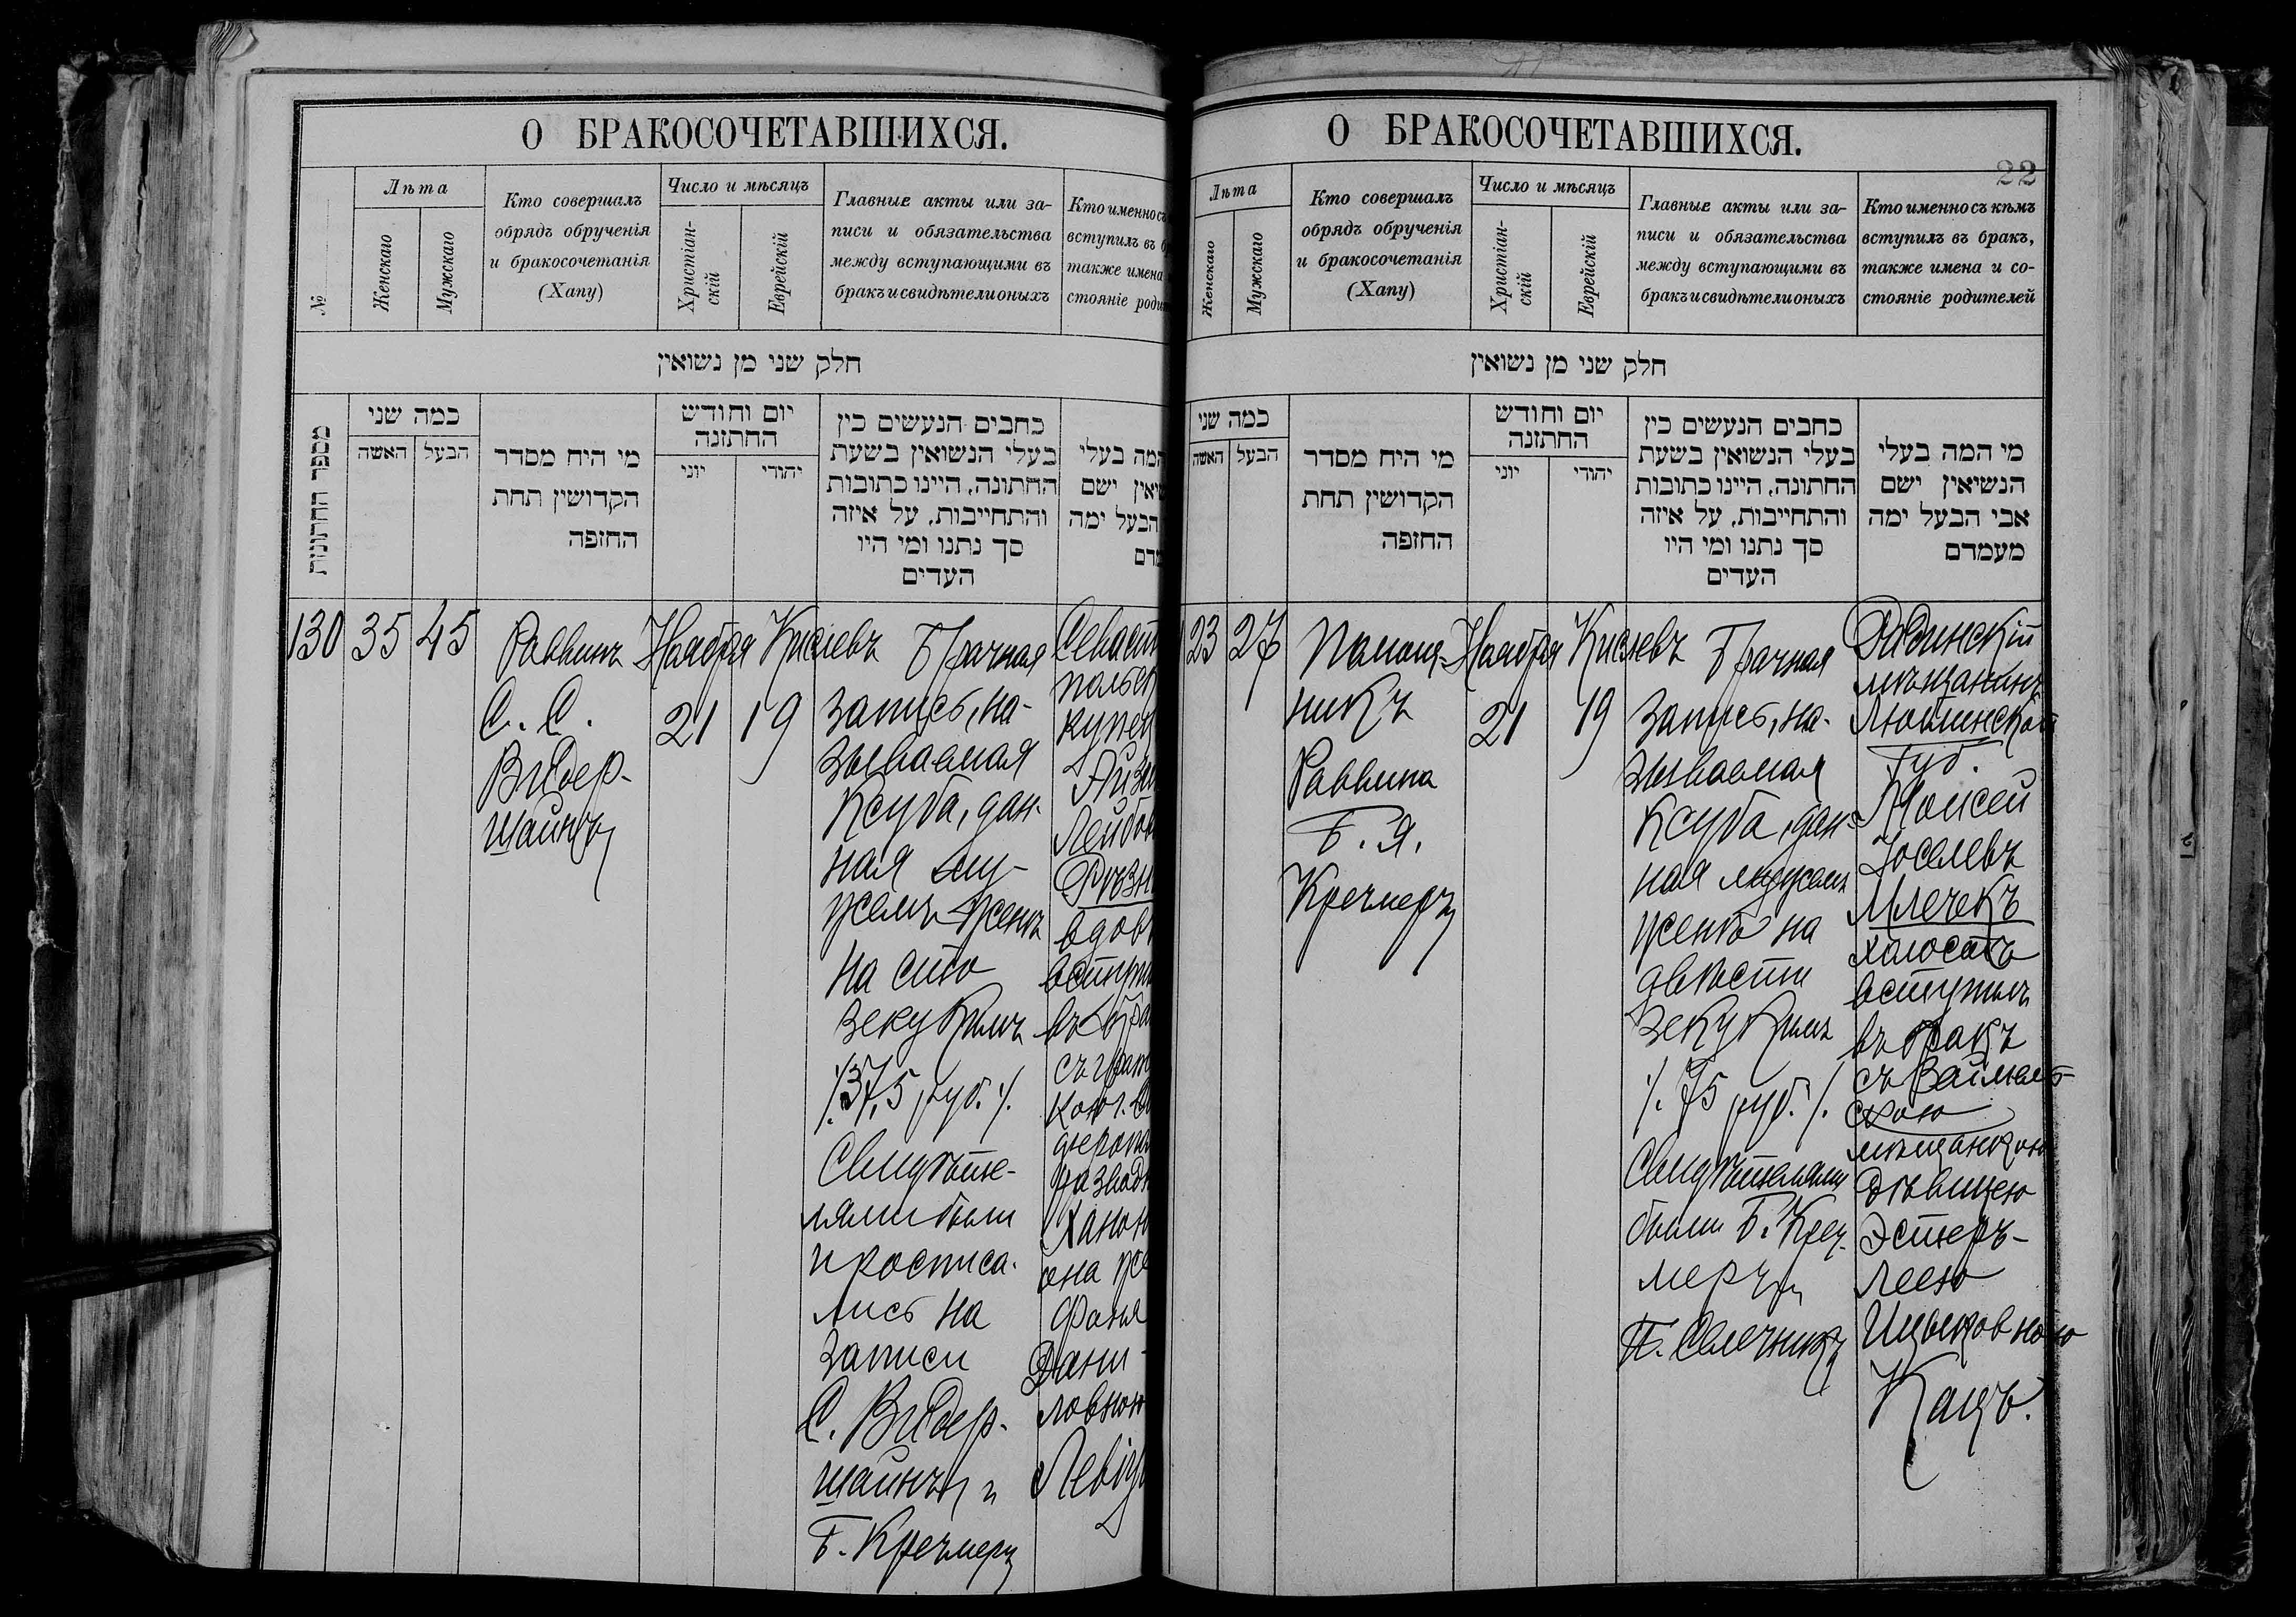 О БРАКОСОЧЕТАВШИХСЯ.
№
Лѣта
Женскаго
Мужскаго
Кто совершалъ
обрядъ обрученія
и бракосочетанія
(Хапу)
Число и мѣсяцъ
Христіан-
скій
Еврейскій
Главные акты или за-
писи и обязательства
между вступающими въ
бракъ и свидѣтели оныхъ
Кто именно съ
вступилъ въ
также имена
стояніе
חלק שני מן נשואין
מספר החתונות
כמה שני
האשה
הבעל
מי היח מסדר
הקדושין תחת
החזפה
יום וחודש
החתזנה
יוני
יהודי
כחבים הנעשים כין
בעלי הנשואין בשעת
החתונה, היינו כתובות
והתחייבות, על איזה
סך נתנו ומי היו
העדים
המה בעלי
ישם
הבעל ימה
130
35
45
Раввинъ
С. С.
Видер-
шайнъ
Ноября
21
Кислевъ
19
Брачная
запись, на-
зываемая
Ксуба, дан-
ная му-
жемъ женѣ
на сто
зекукимъ
/.37,5 руб./.
Свидѣте-
лями были
и росписа-
лись на
записи
С. Видер-
шайнъ и
Б. Кречмеръ
Севасто
польск
купец
Айзи
Лейбов
Рѣзн
вдов
вступи
въ бра
съ
разводн
Ханою
она же
Фаня
Дани-
ловною
О БРАКОСОЧЕТАВШИХСЯ.
22
Лѣта
Женскаго
Мужскаго
Кто совершалъ
обрядъ обрученія
и бракосочетанія
(Хапу)
Число и мѣсяцъ
Христіан-
скій
Еврейскій
Главные акты или за-
писи и обязательства
между вступающими въ
бракъ и свидѣтели оныхъ
Кто именно съ кѣмъ
вступилъ въ бракъ,
также имена и со-
стояніе родителей
חלק שני מן נשואין
כמה שני
האשה
הבעל
מי היח מסדר
הקדושין תחת
החזפה
יום וחודש
החתזנה
יוני
יהודי
כחבים הנעשים כין
בעלי הנשואין בשעת
החתונה, היינו כתובות
והתחייבות, על איזה
סך נתנו ומי היו
העדים
מי המה בעלי
הנשיאין ישם
אבי הבעל ימה
מעמדם
23
27
Помощ-
никъ
Раввина
Б. Я.
Кречмеръ
Ноября
21
Кислевъ
19
Брачная
запись, на-
зываемая
Ксуба, дан-
ная мужемъ
женѣ на
двѣсти
зекукимъ
/.75 руб./.
Свидѣтелями
были Б. Креч-
меръ и
мѣщанинъ
Губ.
Моисей
Іоселевъ
Млечекъ
холостъ
вступилъ
въ бракъ
мѣщанкою
дѣвицею
Эстеръ-
Леею
Ицковною
Кацъ.